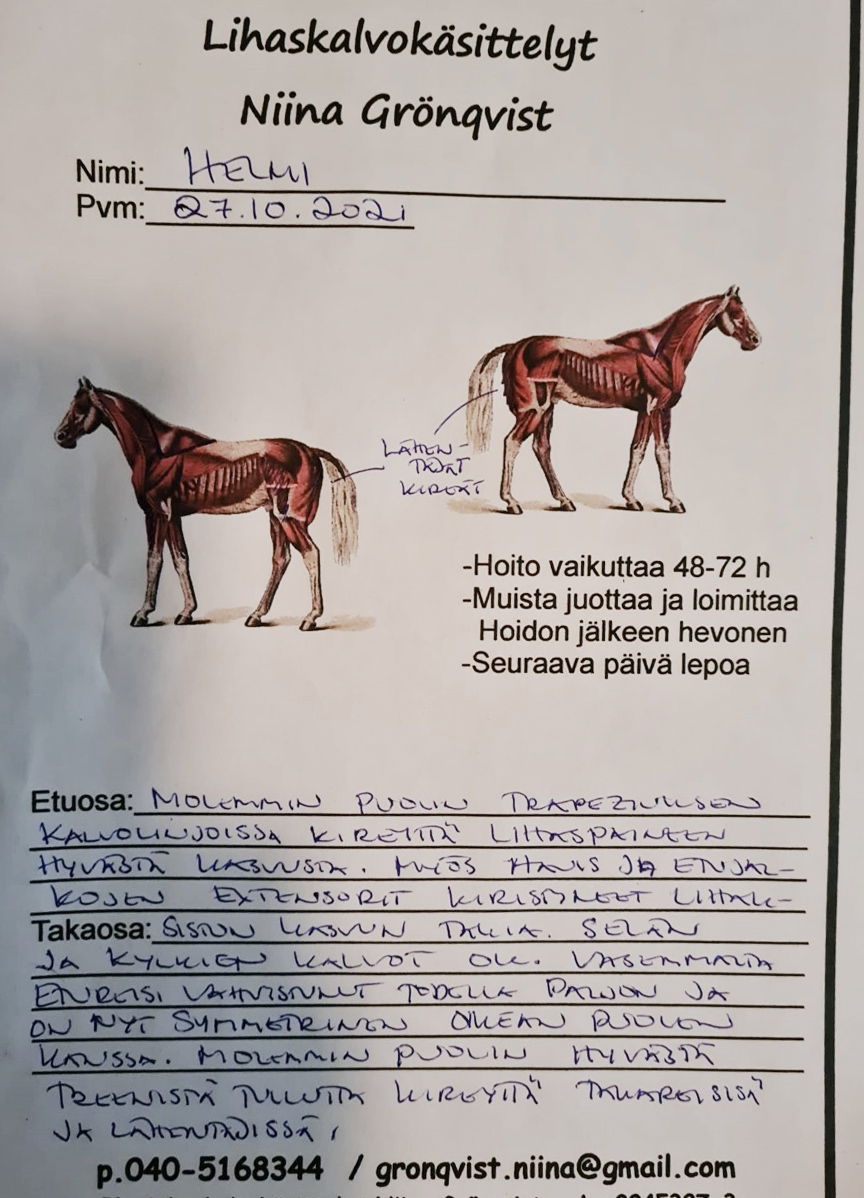 Lihaskalvokäsittelyt
Niina Grönqvist
Nimi: HELMI
Pvm: 27.10.2021
LÄHEN-
TÄJÄT
KIREÄT
-Hoito vaikuttaa 48-72 h
-Muista juottaa ja loimittaa
Hoidon jälkeen hevonen
-Seuraava päivä lepoa
Etuosa: MOLEMMIN PUOLIN TRAPEZIUKSEN
KALVOLINJOISSA KIREYTTÄ LIHASPAINEEN
HYVÄSTÄ KASVUSTA. MYÖS HAUIS JA ETUJAL-
KOJEN EXTENSORIT KIRISTYNEET LIHAK-
Takaosa: SISTON KASVUN TAKIA. SELÄN
JA KYLKIEN KALVOT OK. VASEMMALTA
ETUREISI VAHVISTUNUT TODELLA PALJON JA
ON NYT SYMMETRINEN OIKEAN PUOLEN
KANSSA. MOLEMMIN PUOLIN HYVÄSTÄ
TREENISTÄ TULLUTTA KIREYTTÄ TAKAREISISSÄ
JA LÄHENTÄJISSÄ,
p.040-5168344 / gronqvist.niina@gmail.com